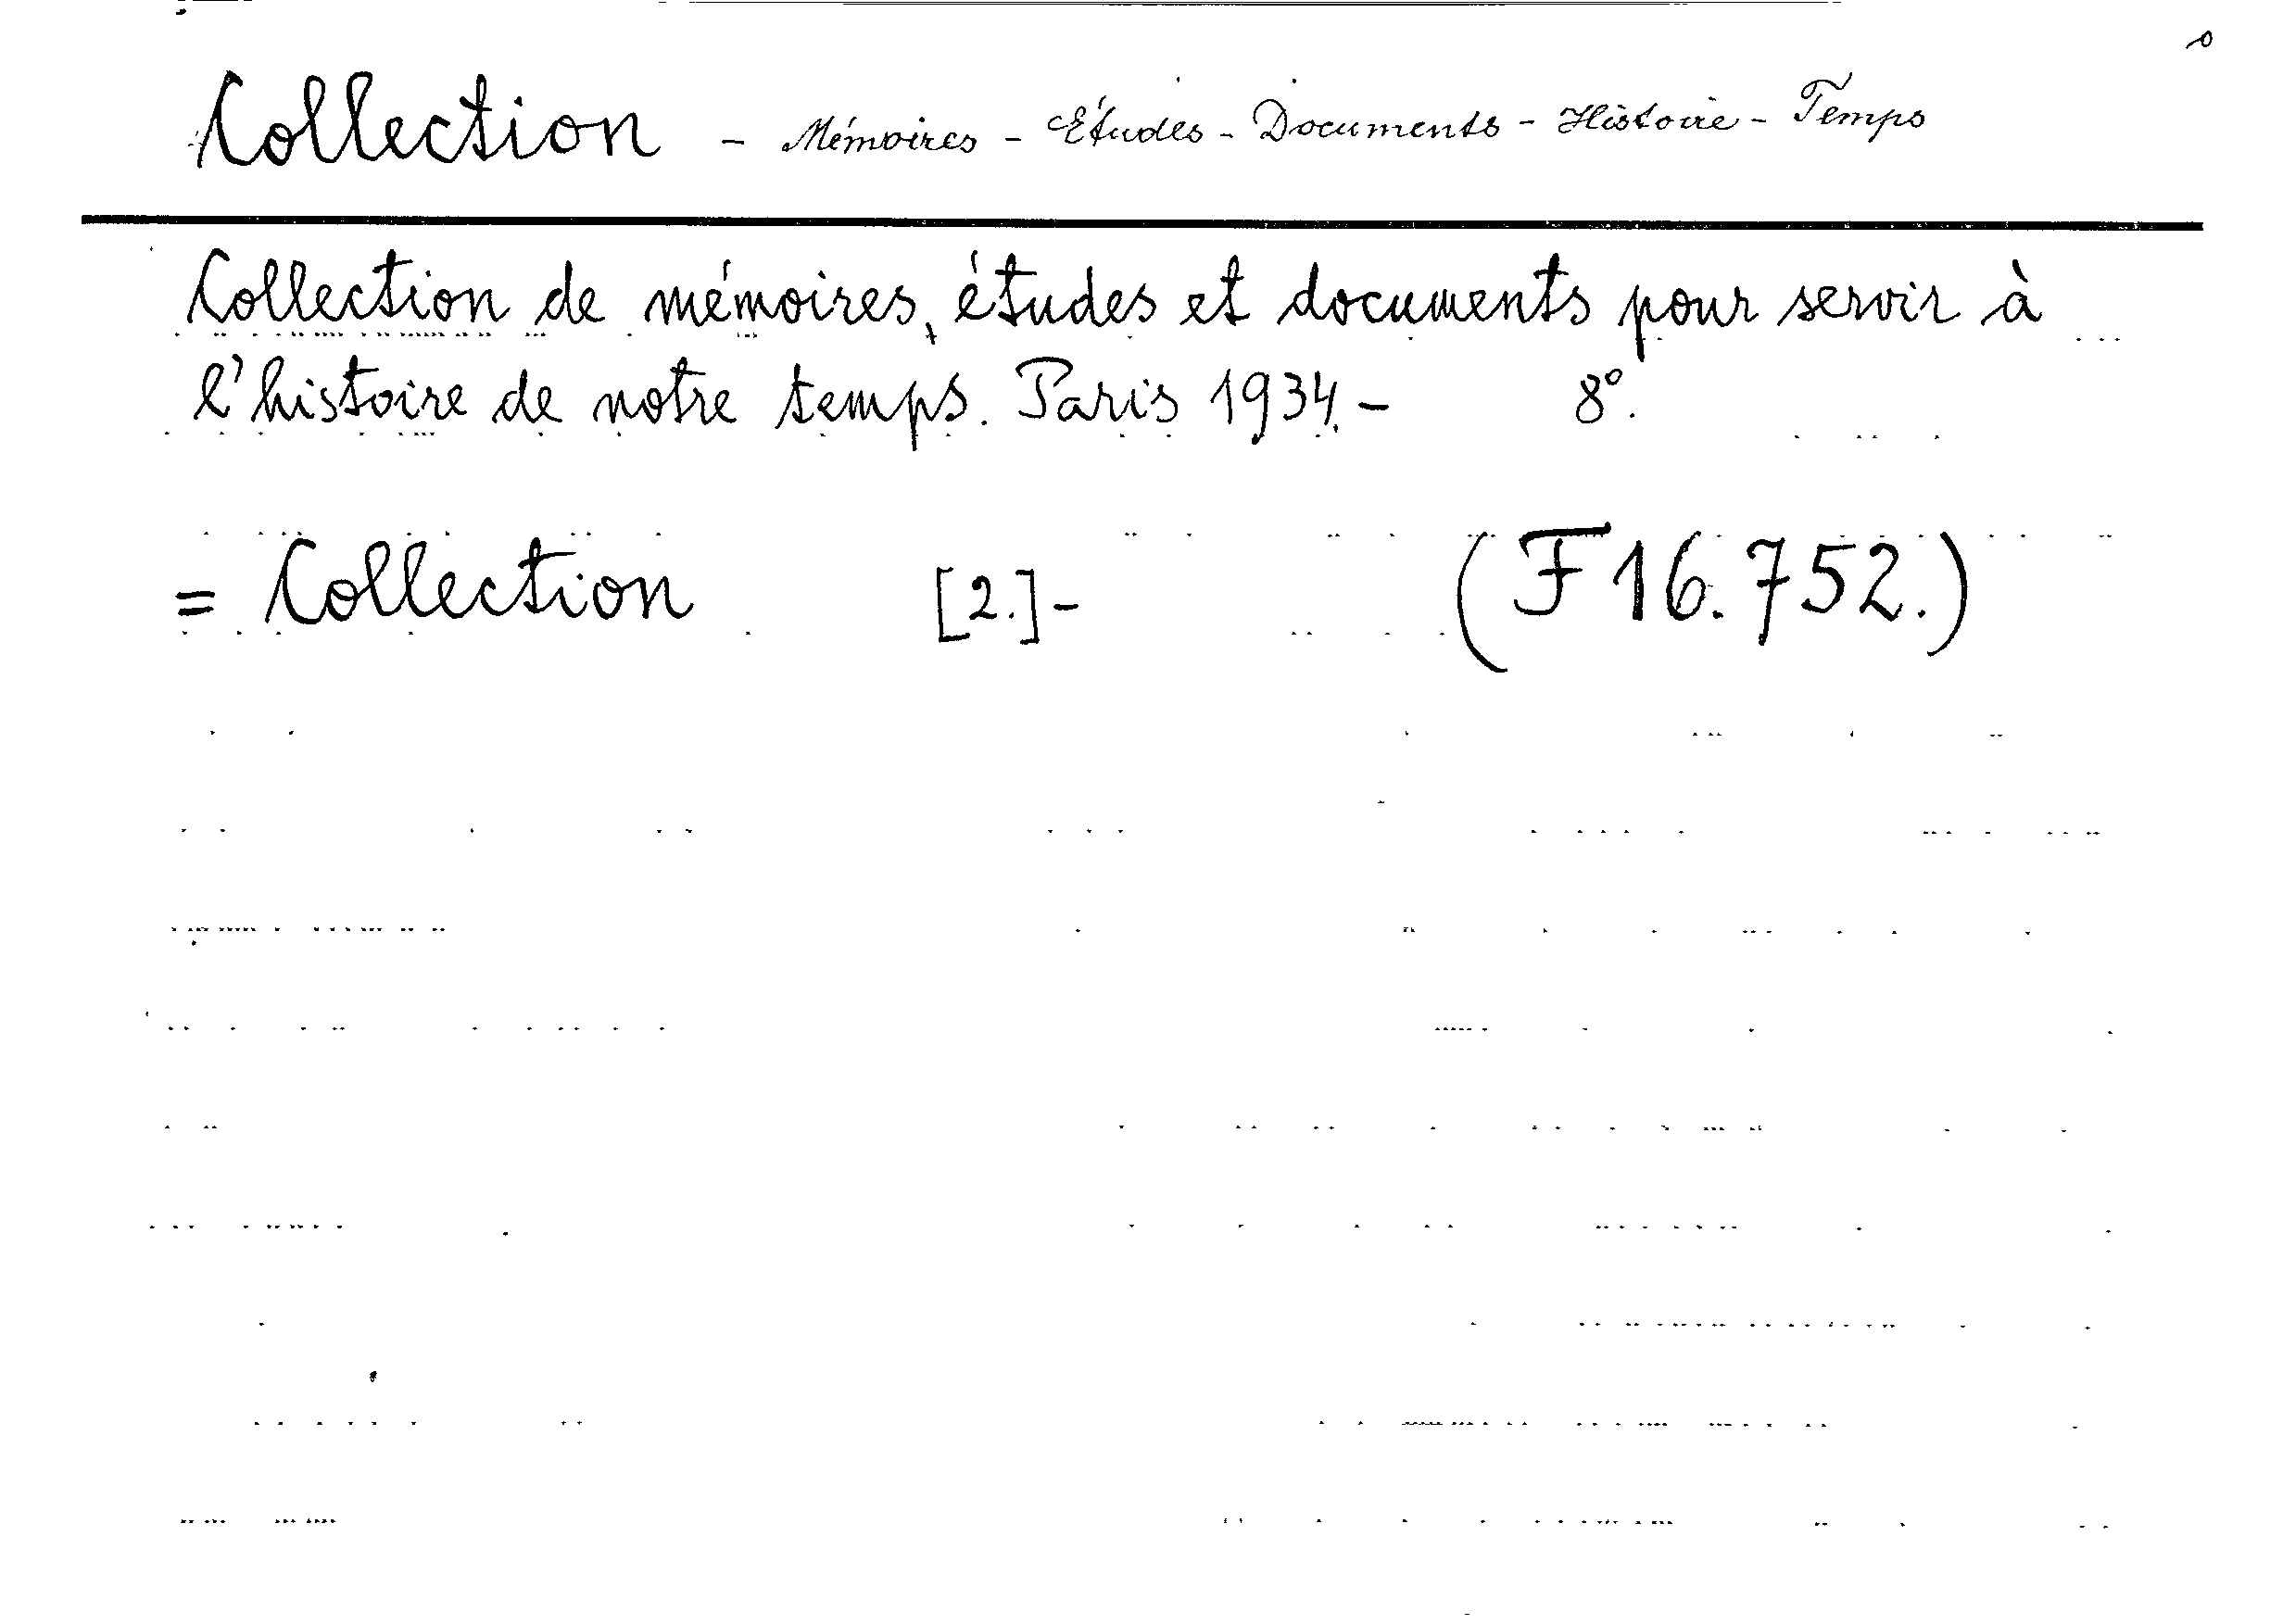 Collection - Mémoires - Études - Documents - Histoire - Temps
Collection de mémoires, études et documents pour servir à
l'histoire de notre temps. Paris 1934.- 8°.
= Collection [2.]- (F 16.752.)